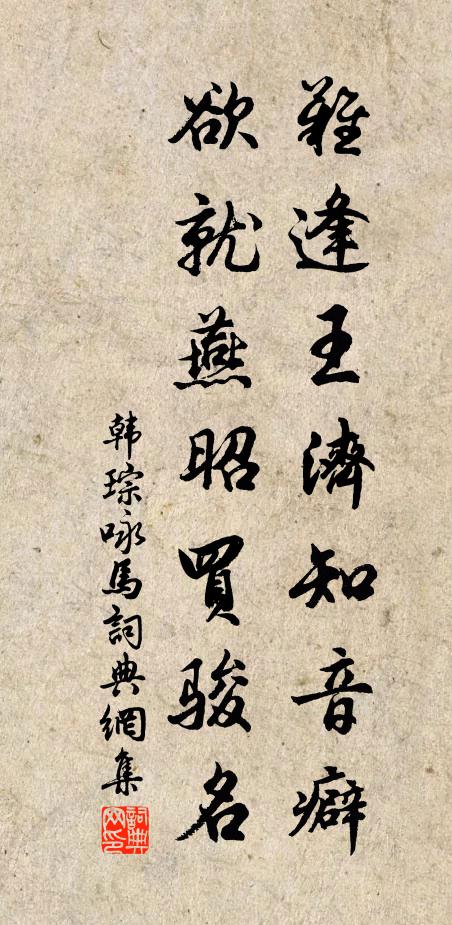 難逢王濟知音癖
欲就燕昭買駿名
韩琮咏馬詞典網集
詞典
网印